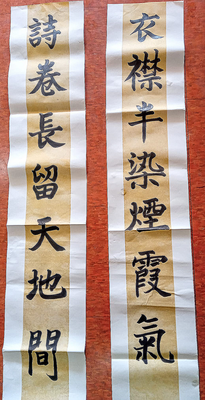 衣襟半染煙霞氣
詩卷長留天地間